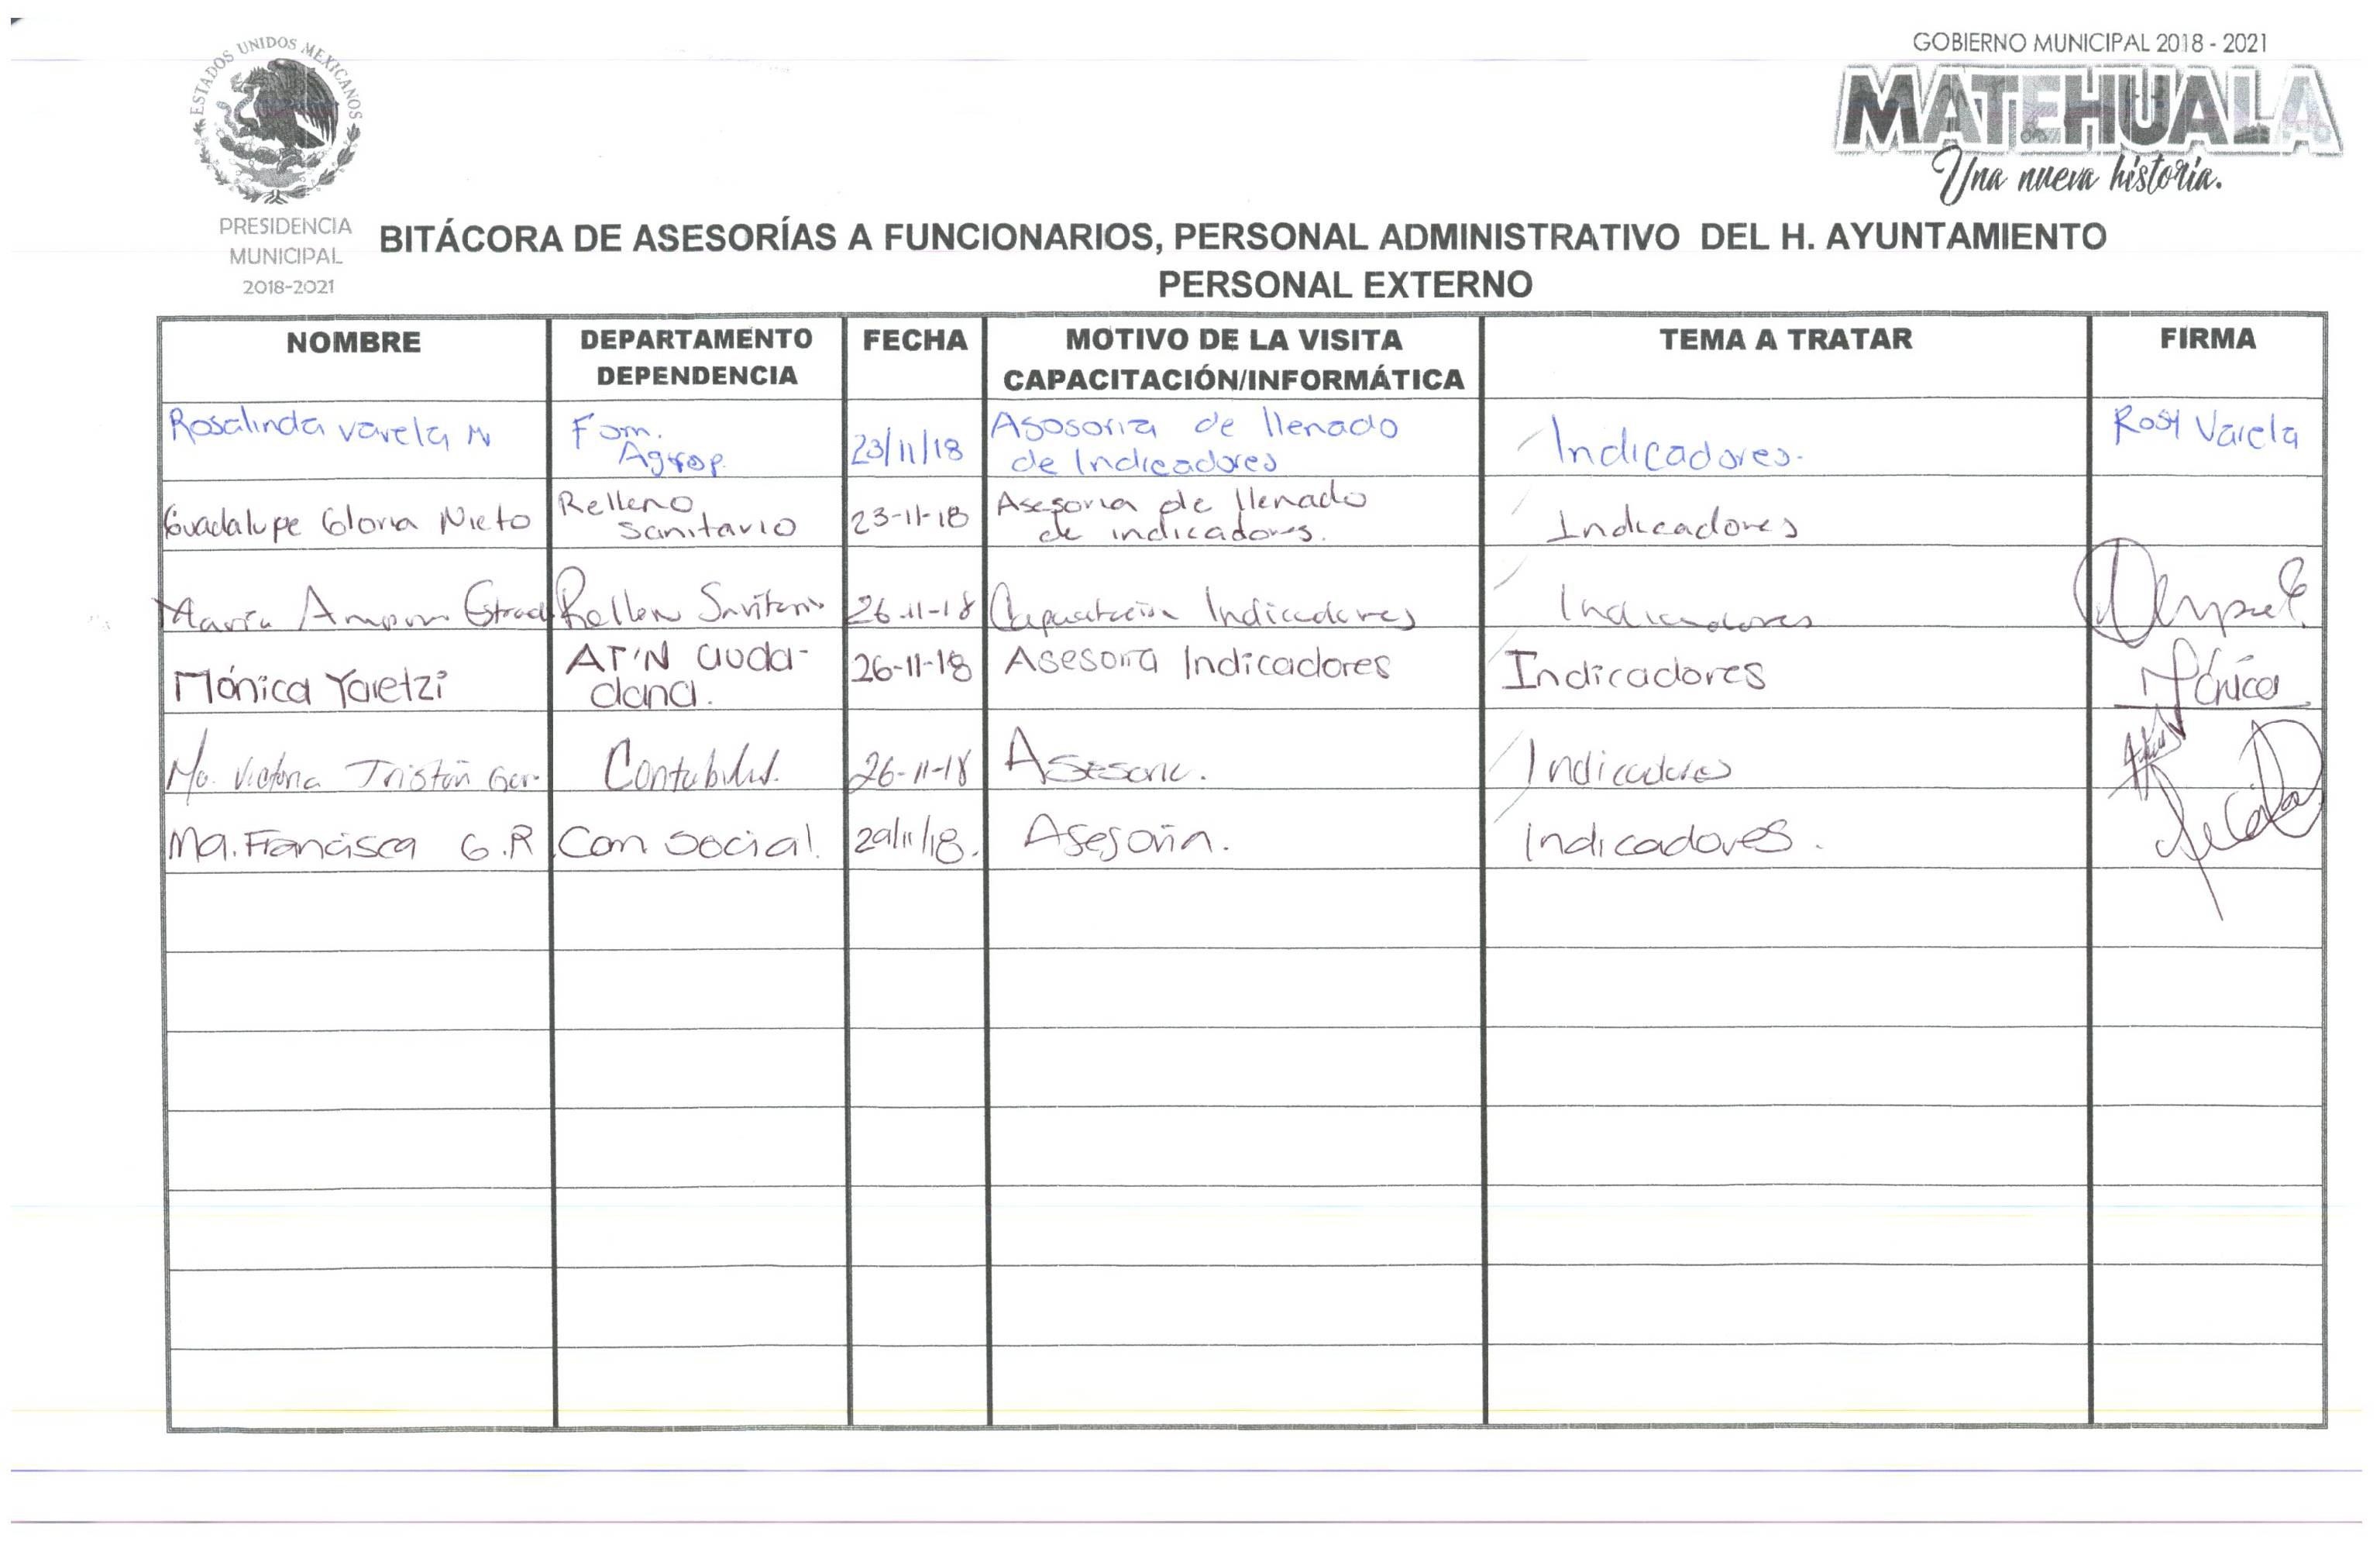 ESTADOS UNIDOS MEXICANOS
GOBIERNO MUNICIPAL 2018 - 2021
MATEHUALA
Una nueva historia.
PRESIDENCIA
MUNICIPAL
2018-2021
BITÁCORA DE ASESORÍAS A FUNCIONARIOS, PERSONAL ADMINISTRATIVO DEL H. AYUNTAMIENTO
PERSONAL EXTERNO
NOMBRE
DEPARTAMENTO
DEPENDENCIA
FECHA
MOTIVO DE LA VISITA
CAPACITACIÓN/INFORMÁTICA
TEMA A TRATAR
FIRMA
Rosalinda Varela M
Fom.
Agrop.
23/11/18
Asosoria de llenado
de Indicadores
Indicadores.
Rosy Varela
Guadalupe Gloria Nieto
Relleno
Sanitario
23-11-18
Asesoria de llenado
de indicadores.
Indicadores
María Amparo Estrad
Relleno Sanitario
26-11-18
Capacitación Indicadores
Indicadores
Mónica Yaretzi
AT'N ciuda-
dana.
26-11-18
Asesoria Indicadores
Indicadores
Mónica
Ma. Victoria Tristán Gar.
Contabilid.
26-11-18
Asesoria.
Indicadores
Ma. Francisca G.R
Com Social.
29/11/18.
Asesoría.
Indicadores.